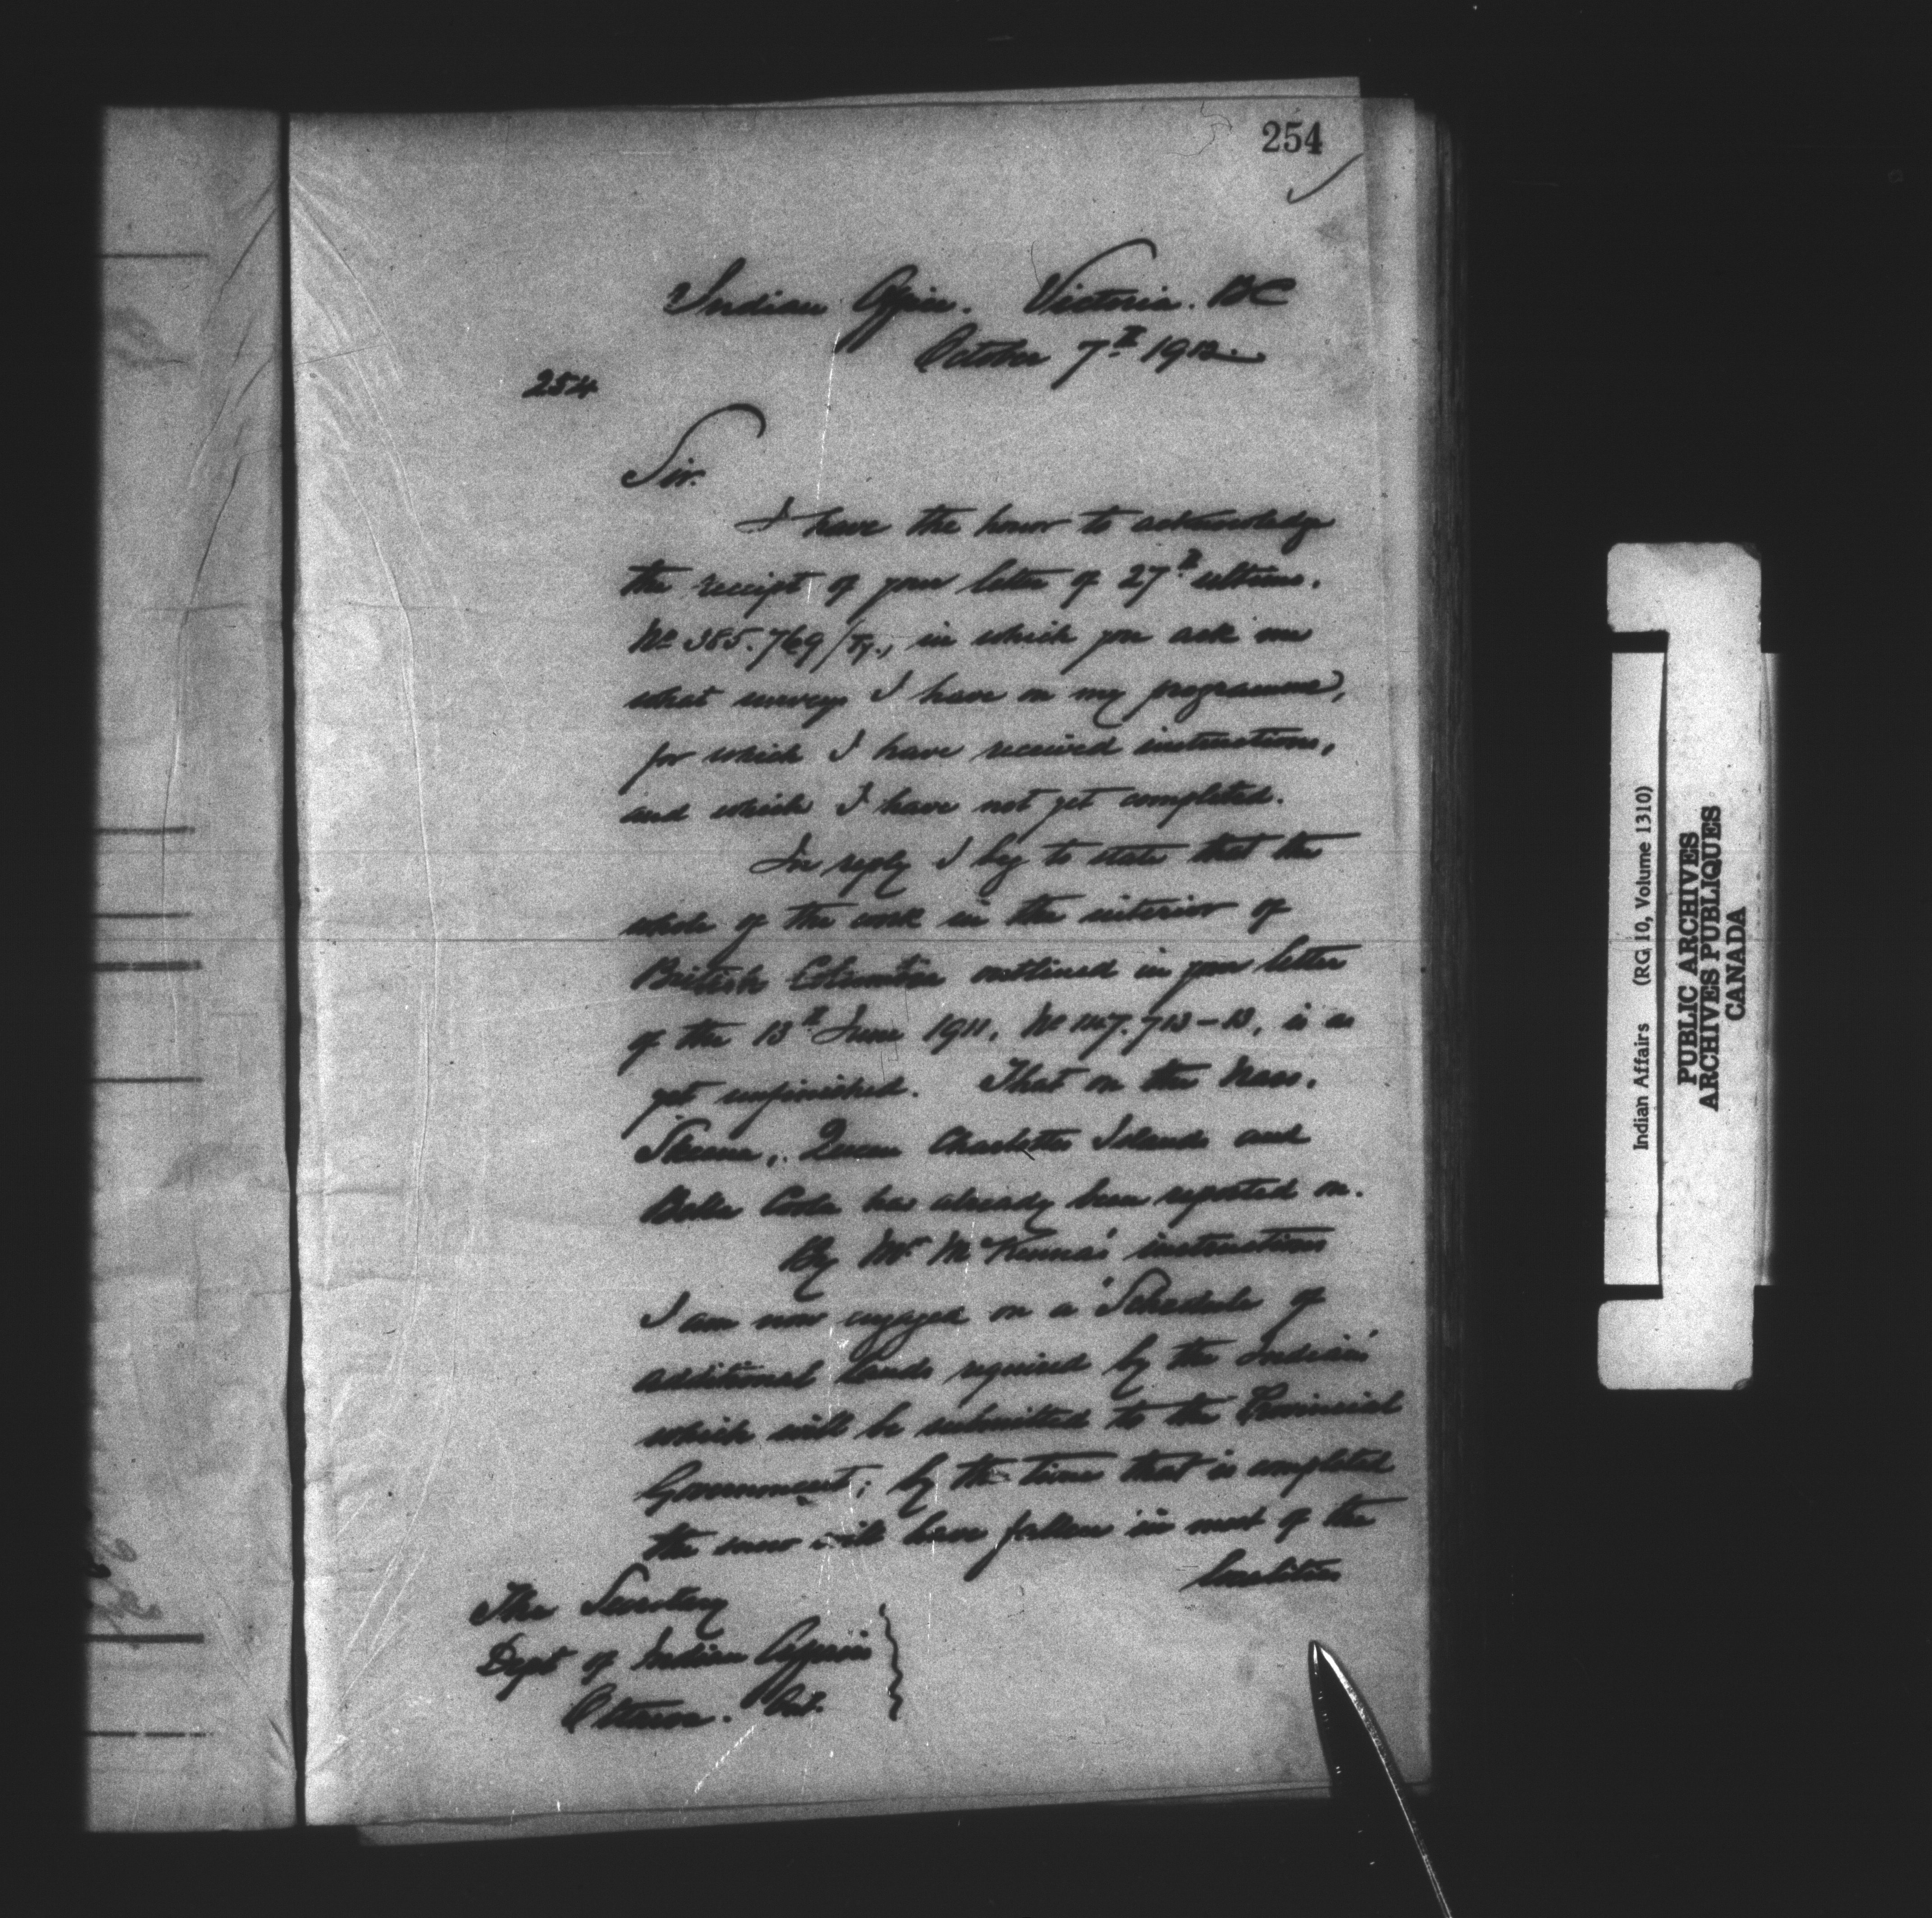 254
Indian Office. Victoria. BC
October 7th 1912
254
Sir.
I have the honor to acknowledge
the receipt of your letter of 27th ultimo.
No 385.769/ in which you ask me
what surveys I have on my programme,
for which I have received instructions,
and which I have not yet completed.
In reply I beg to state that the
whole of the work in the interior of
British Columbia outlined in your letter
of the 13th June 1911. No is as
yet unfinished. That on the Naas.
Skeena, Queen Charlotte Islands and
Bella Coola has already been reported on.
By Mr McKenna's instructions
I am now engaged on a Schedule of
additional lands required by the Indians
which will be submitted to the Provincial
Government; by the time that is completed
the snow will have fallen in most of the
localities
The Secretary
Dept of Indian Affairs
Ottawa. Ont.
Indian Affairs (RG 10, Volume 1310)
PUBLIC ARCHIVES
ARCHIVES PUBLIQUES
CANADA